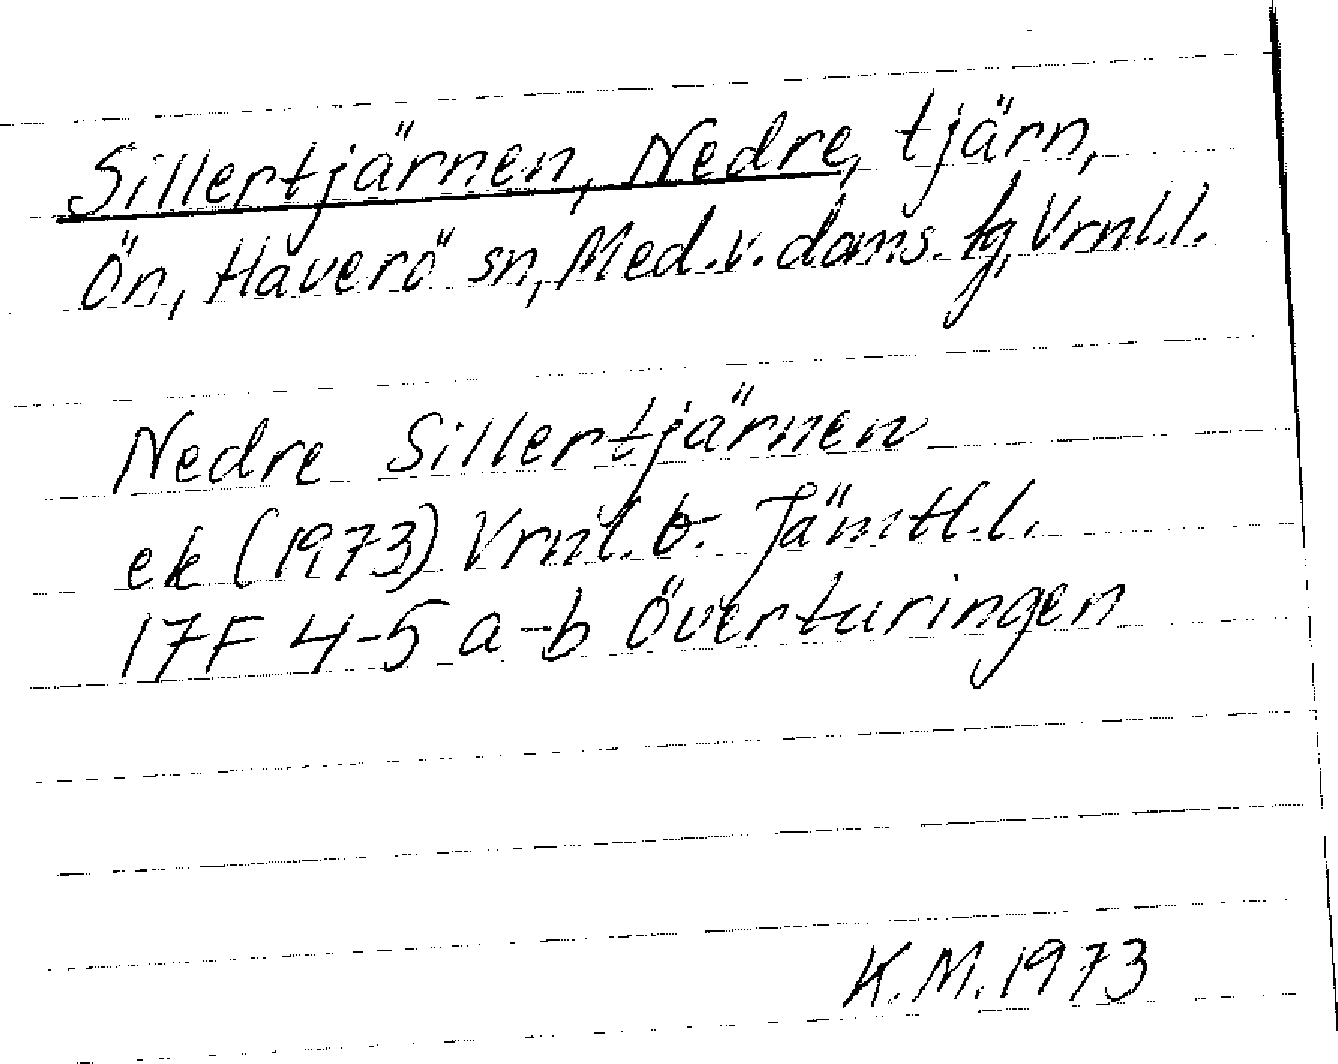 Sillertjärnen, Nedre, tjärn,
Ön, Haverö sn, Med.v.doms.fg, Vrnl.l.
Nedre Sillertjärnen
ek (1973) Vrnl.o. Jämtl.l.
17F 4-5 a-b Överturingen
K.M.1973